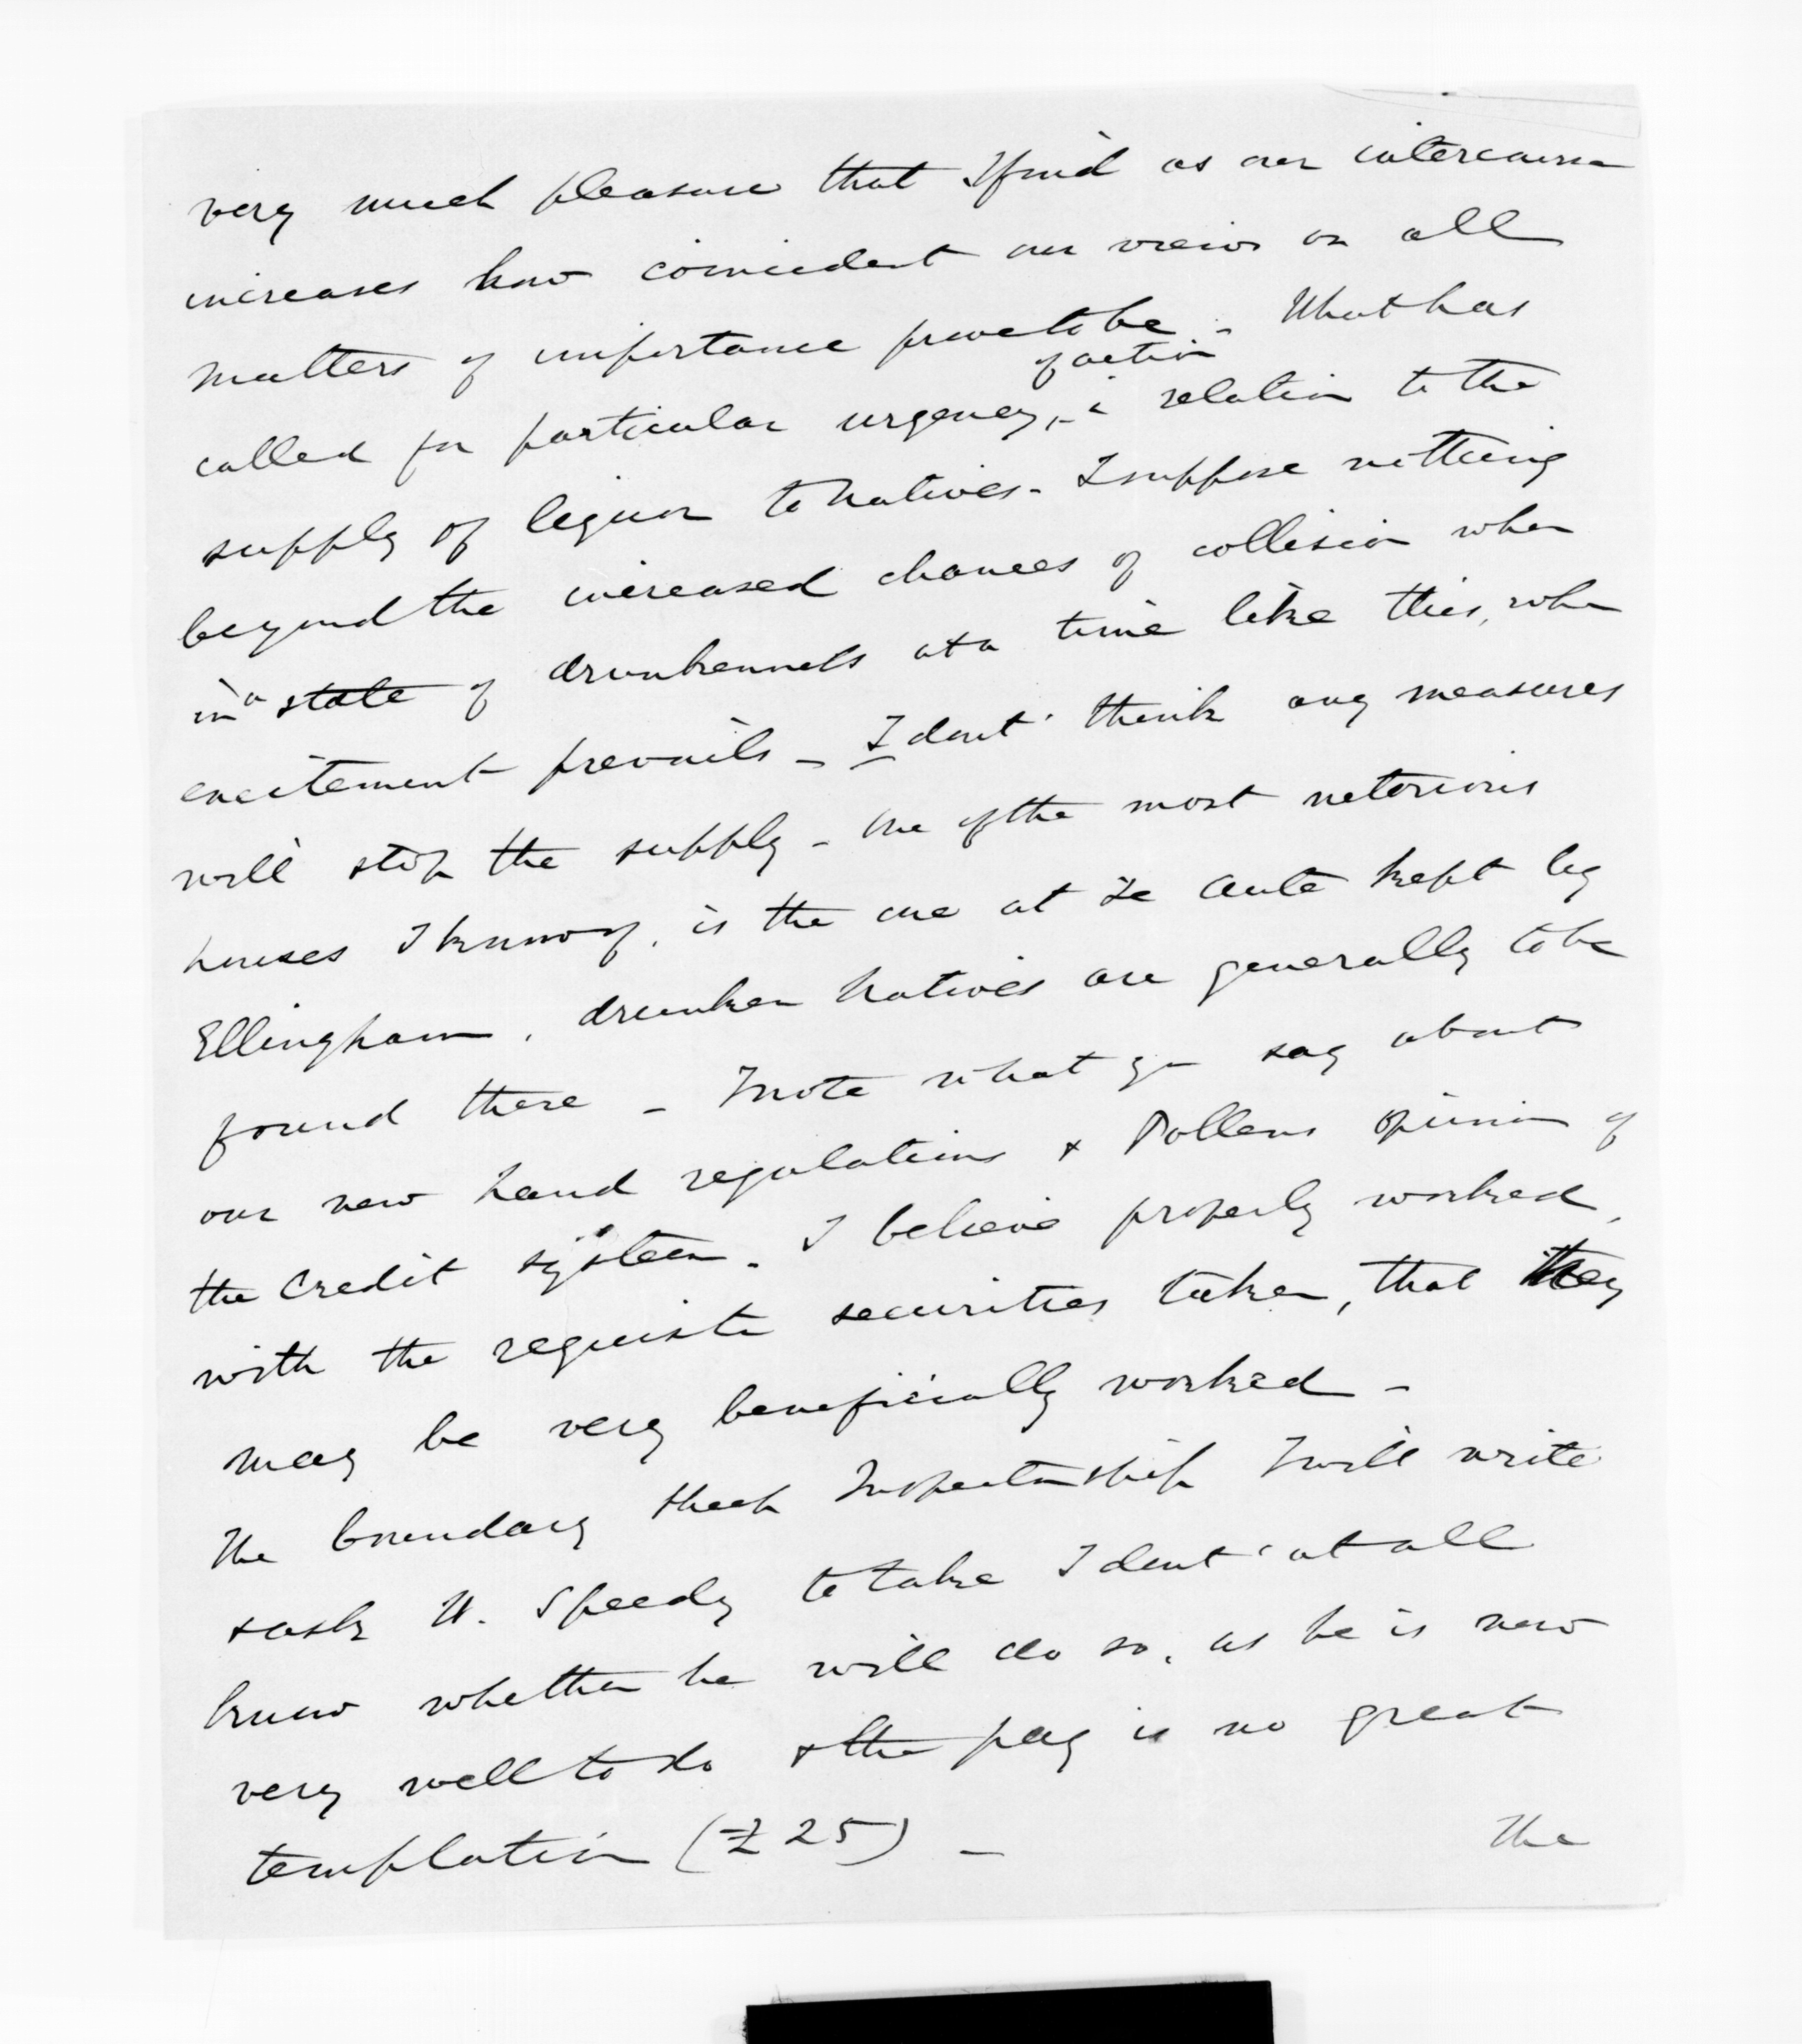 very much pleasure that I find as our intercourse
increases how coincident our views on all
matters of importance prove to be - What has
of action
called for particular urgency, - in relation to the
supply of liquor to Natives - I suppose nothing
beyond the increased chances of collision when
in a state of drunkenness at a time like this, when
excitement prevails - I dont' think any measures
will stop the supply - One of the most notorious
houses I know of, is the one at Te Aute kept by
Ellingham, drunken Natives are generally to be
found there - I note what you say about
our new Land regulations & Pollens opinion of
the Credit system. I believe properly worked,
with the requisite securities taken, that they
may be very beneficially worked -
The boundary sheep Inspectorship I will write
& ask W. Speedy to take I dont' at all
know whether he will do so, as he is now
very well to do & the pay is no great
temptation (£25) -
The